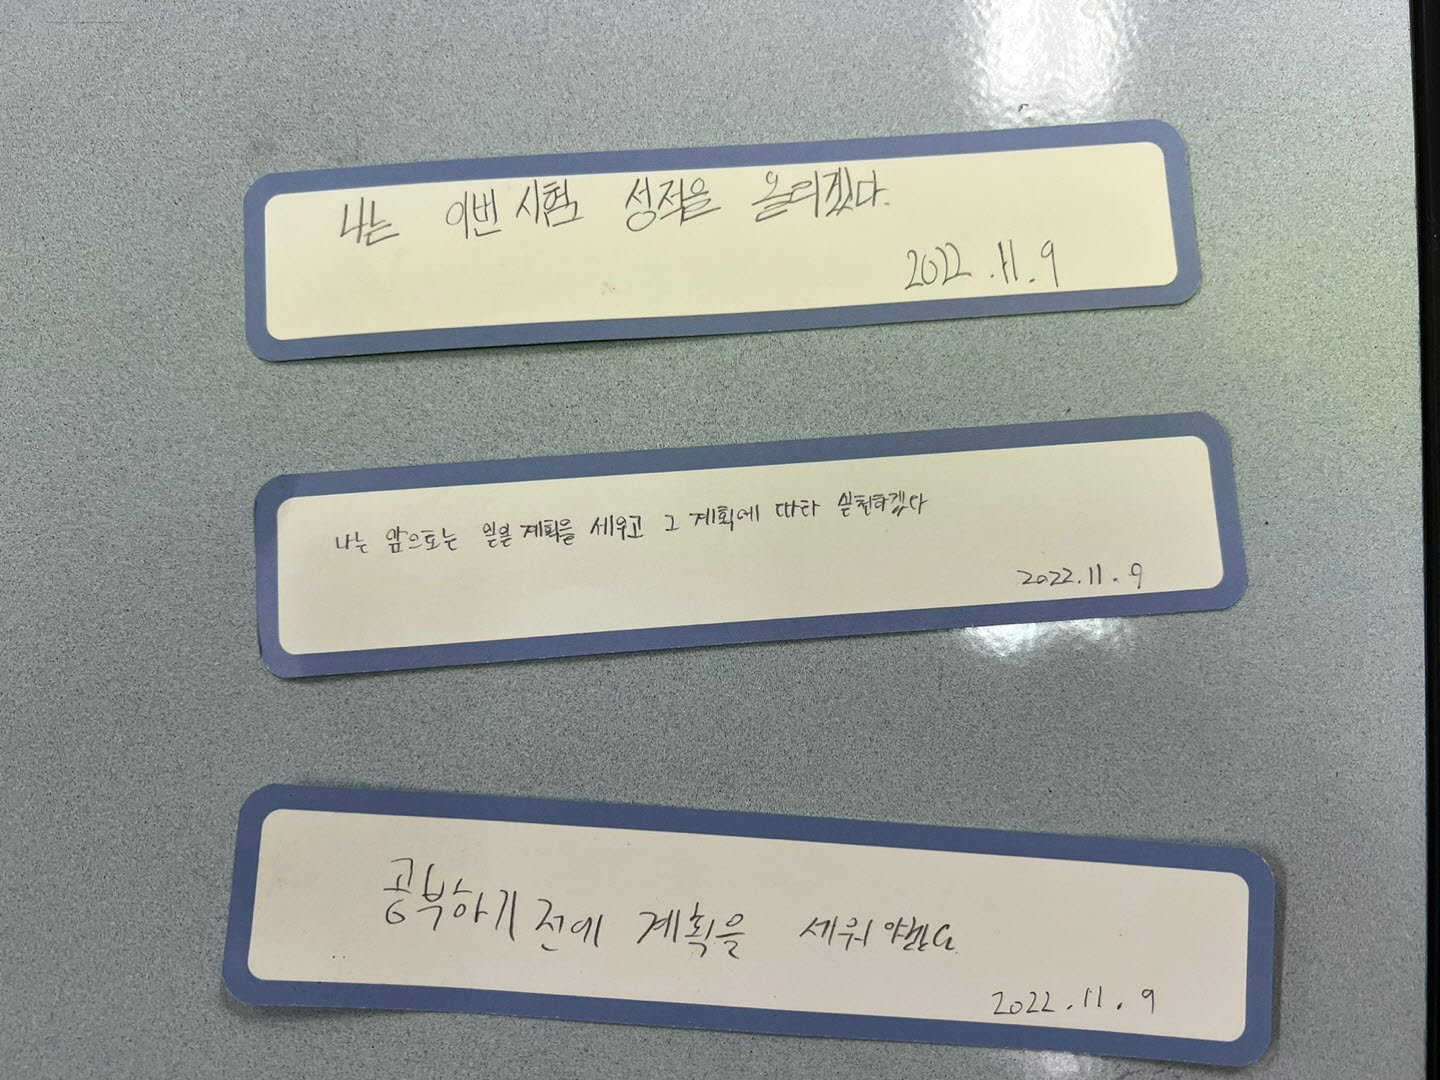 나는 이번 시험 성적을 올리겠다.
2022.11.9
나는 앞으로는 일일 계획을 세우고 그 계획에 따라 실천하겠다
2022.11.9
공부하기 전에 계획을 세워
2022.11.9